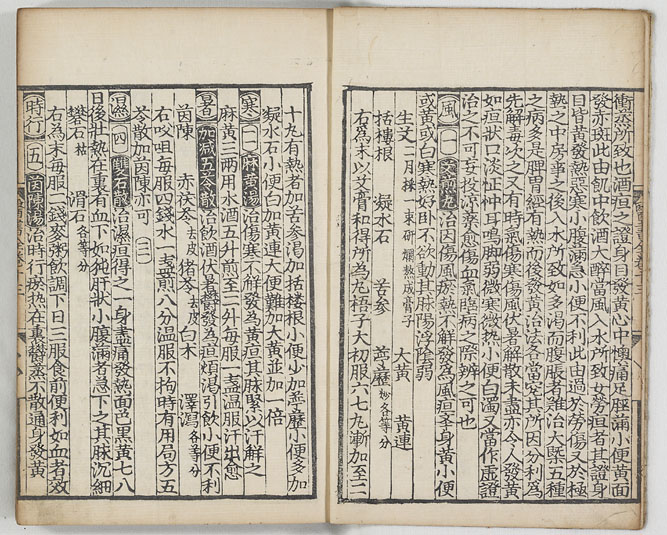 衝烝所致也酒疸之證身目發黃心中懊痛足脛滿小便黃面
發赤斑此由飢中飲酒大醉當風入水所致女勞疸者其證身
目皆黃發熱惡寒小腹滿急小便不利此由過於勞傷又於極
熱之中房事之後入水所致如多渴而腹脹者難治大槩五種
之病多是脾胃經有熱而後發黃治法各當究其所因分利為
先解毒次之又有時氣傷寒傷風伏暑解散未盡亦令人發黃
如疸狀口淡怔忡耳鳴脚弱微寒微熱小便白濁又當作虛證
治之不可妄投涼藥愈傷血氣臨病之際辨之可也
風 一 艾煎丸治因傷風瘀熱不解發為風疸舉身黃小便
或黃或白寒熱好卧不欲動其脉陽浮陰弱
生艾二月採一束研爛熬成膏子 大黃 黃連
括樓根 凝水石 苦參 葶藶炒各等分
右為末以艾膏和得所為丸梧子大初服六七丸漸加至二
十丸有熱者加苦參渴加括樓根小便少加葶藶小便多加
凝水石小便白加黃連大便難加大黃並加一倍
寒 二 麻黃湯治傷寒不解發為黃疸其脉緊以汗解之
麻黃三兩用水酒五升煎至二升每服一盞溫服汗出愈
暑 加減五苓散治飲酒伏暑鬱發為疸煩渴引飲小便不利
茵陳 赤茯苓去皮 猪苓去皮 白朮 澤瀉各等分
右㕮咀每服四錢水一盞煎八分溫服不拘時有用局方五
苓散加茵陳亦可 三
濕 四 雙石散治濕疸得之一身盡痛發熱面色黑黃七八
日後壯熱在裏有血下如㹠肝狀小腹滿者急下之其脉沉細
礬石枯 滑石各等分
右為末每服二錢麥粥飲調下日三服食前便利如血者效
時行 五 茵陳湯治時行瘀熱在裏鬱蒸不散通身發黃